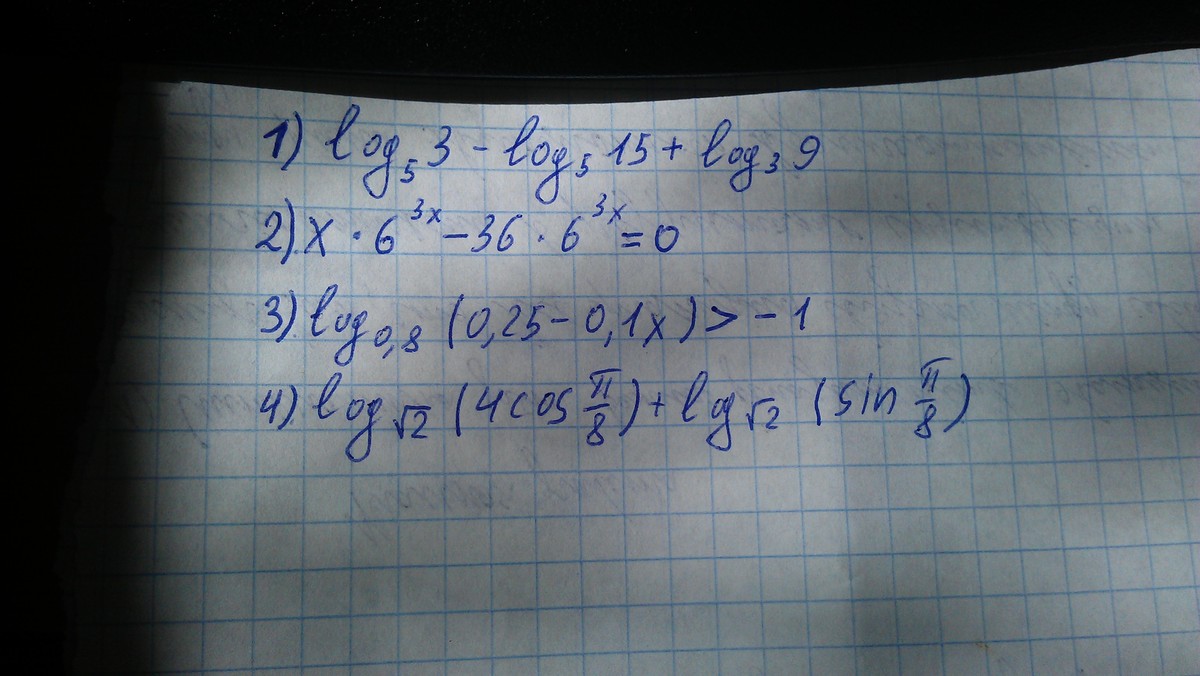 1) log₅ 3 - log₅ 15 + log₃ 9
2) x · 6³ˣ - 36 · 6³ˣ = 0
3) log₀,₈ (0,25 - 0,1x) > - 1
4) log_√2 (4cos π/8) + log_√2 (sin π/8)